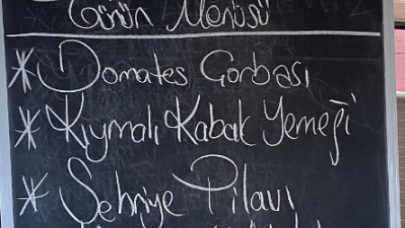 Günün Menüsü
* Domates Çorbası
* Kıymalı Kabak Yemeği
* Şehriye Pilavı